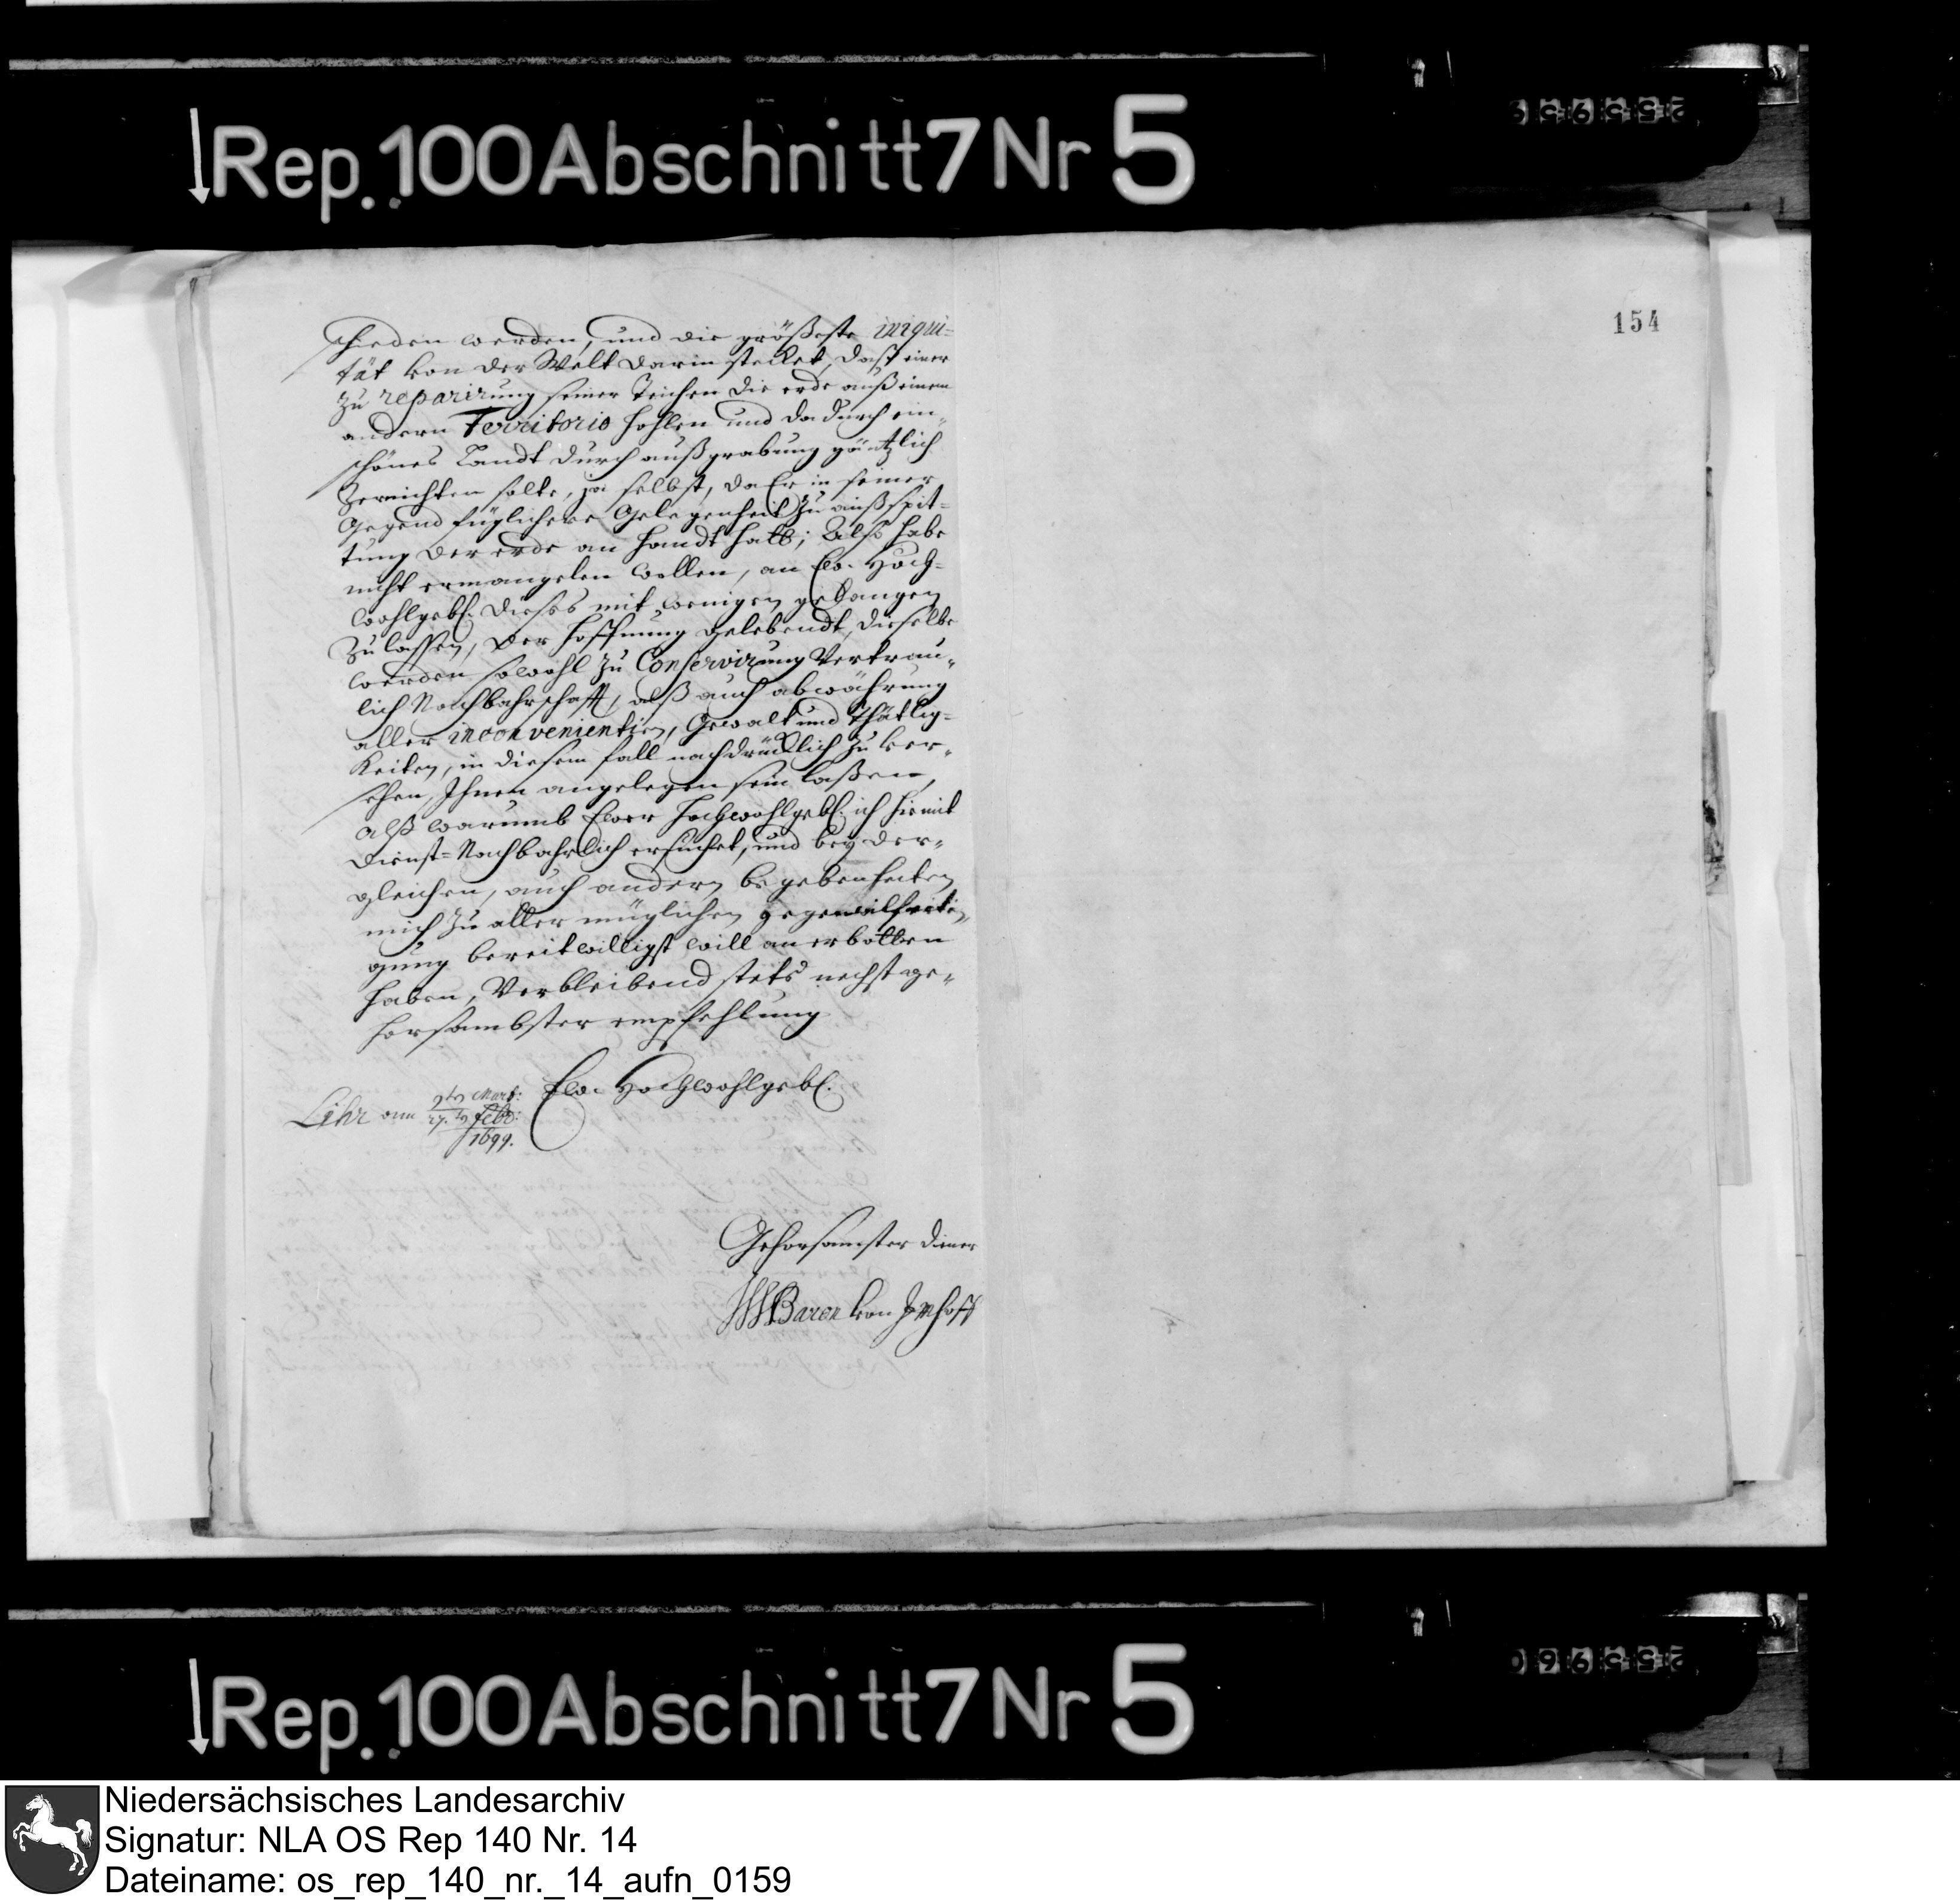 Rep. 100 Abschnitt 7 Nr 5
154
schieden werden, und die größeste iniqui=
tät von der Welt darin stecket, daß einer
zu reparirung seiner Teichen die erde auß einem
andern Territorio hohlen und dadurch ein
schönes Landt durch außgrabung gäntzlich
Zernichten solte, ja selbst, da Er in seiner
Gegend füglichere Gelegenheit zu
tung der erde an handt hatt; Alß habe
nicht ermangelen wollen, an Ew. Hoch=
wohlgebl. dieses mit wenigen gelangen
Zu lassen, der hoffnung gelebendt, dieselbe
werden sowohl zu Conservirung Vertrau=
lich Nachbahrschafft, alß auch abwährung
aller inconvenientien, Gewalt und thätlig=
Keiten, in diesem fall nachdrücklich zu ver=
sehen, Ihnen angelegen sein laßen,
alß warumb Ewer Hochwohlgebl. ich hiemit
dienst=Nachbahrlich ersuchet, und bey der=
gleichen, auch andern begebenheiten
mich zu aller müglichen gegenwilferti=
gung bereitwilligst will anerbotten
haben, Verbleibend stets nechst ge=
horsambster empfehlung
Ew. Hochwohlgebl.
Lihr am 9ten Mart:
27.ten febr:
1699.
Gehorsamster diener
Baron von Imhoff
Rep. 100 Abschnitt 7 Nr 5
Niedersächsisches Landesarchiv
Signatur: NLA OS Rep 140 Nr. 14
Dateiname: os_rep_140_nr._14_aufn_0159